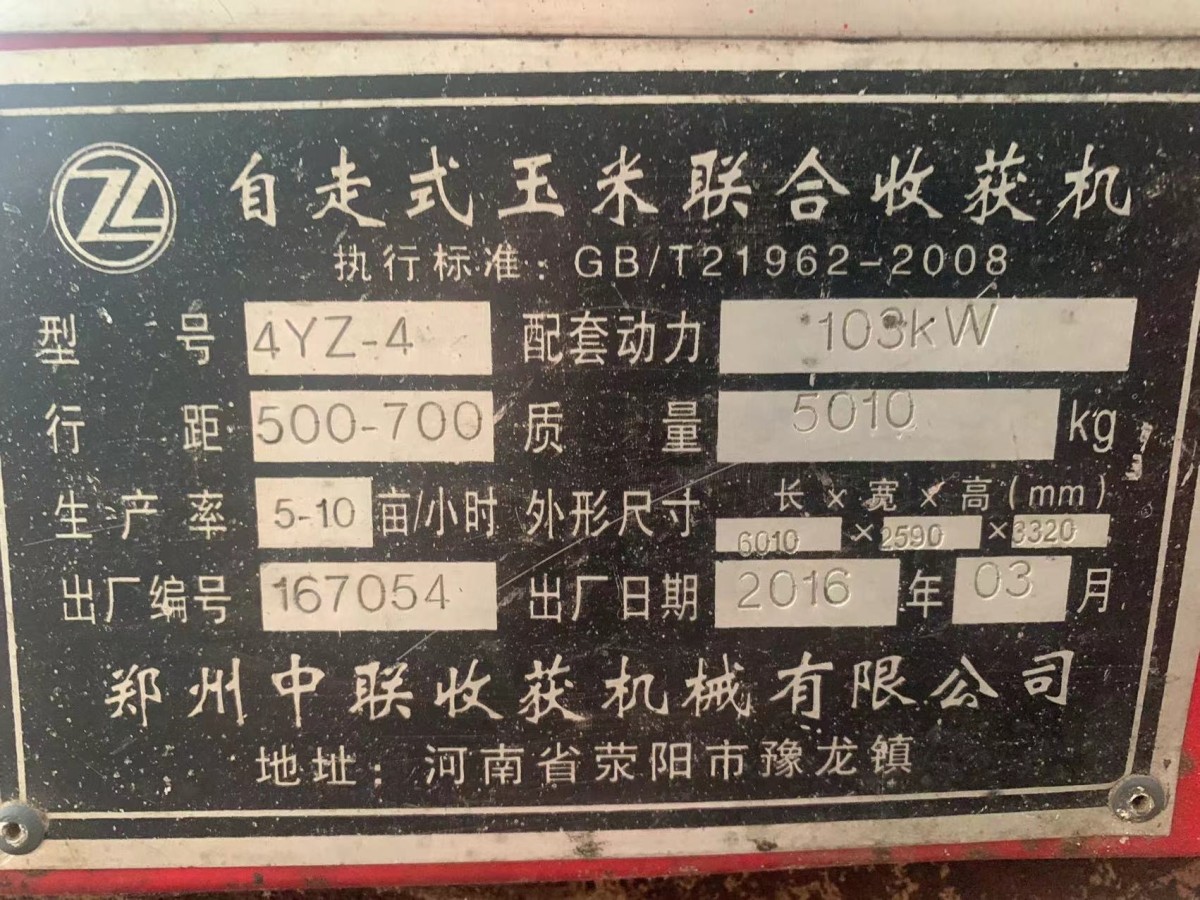 自走式玉米联合收获机
执行标准：GB/T21962-2008
型号 4YZ-4 配套动力 103kW
行距 500-700 质量 5010 kg
生产率 5-10 亩/小时 外形尺寸 长×宽×高(mm)
6010×2590×3320
出厂编号 167054 出厂日期 2016年03月
郑州中联收获机械有限公司
地址：河南省荥阳市豫龙镇